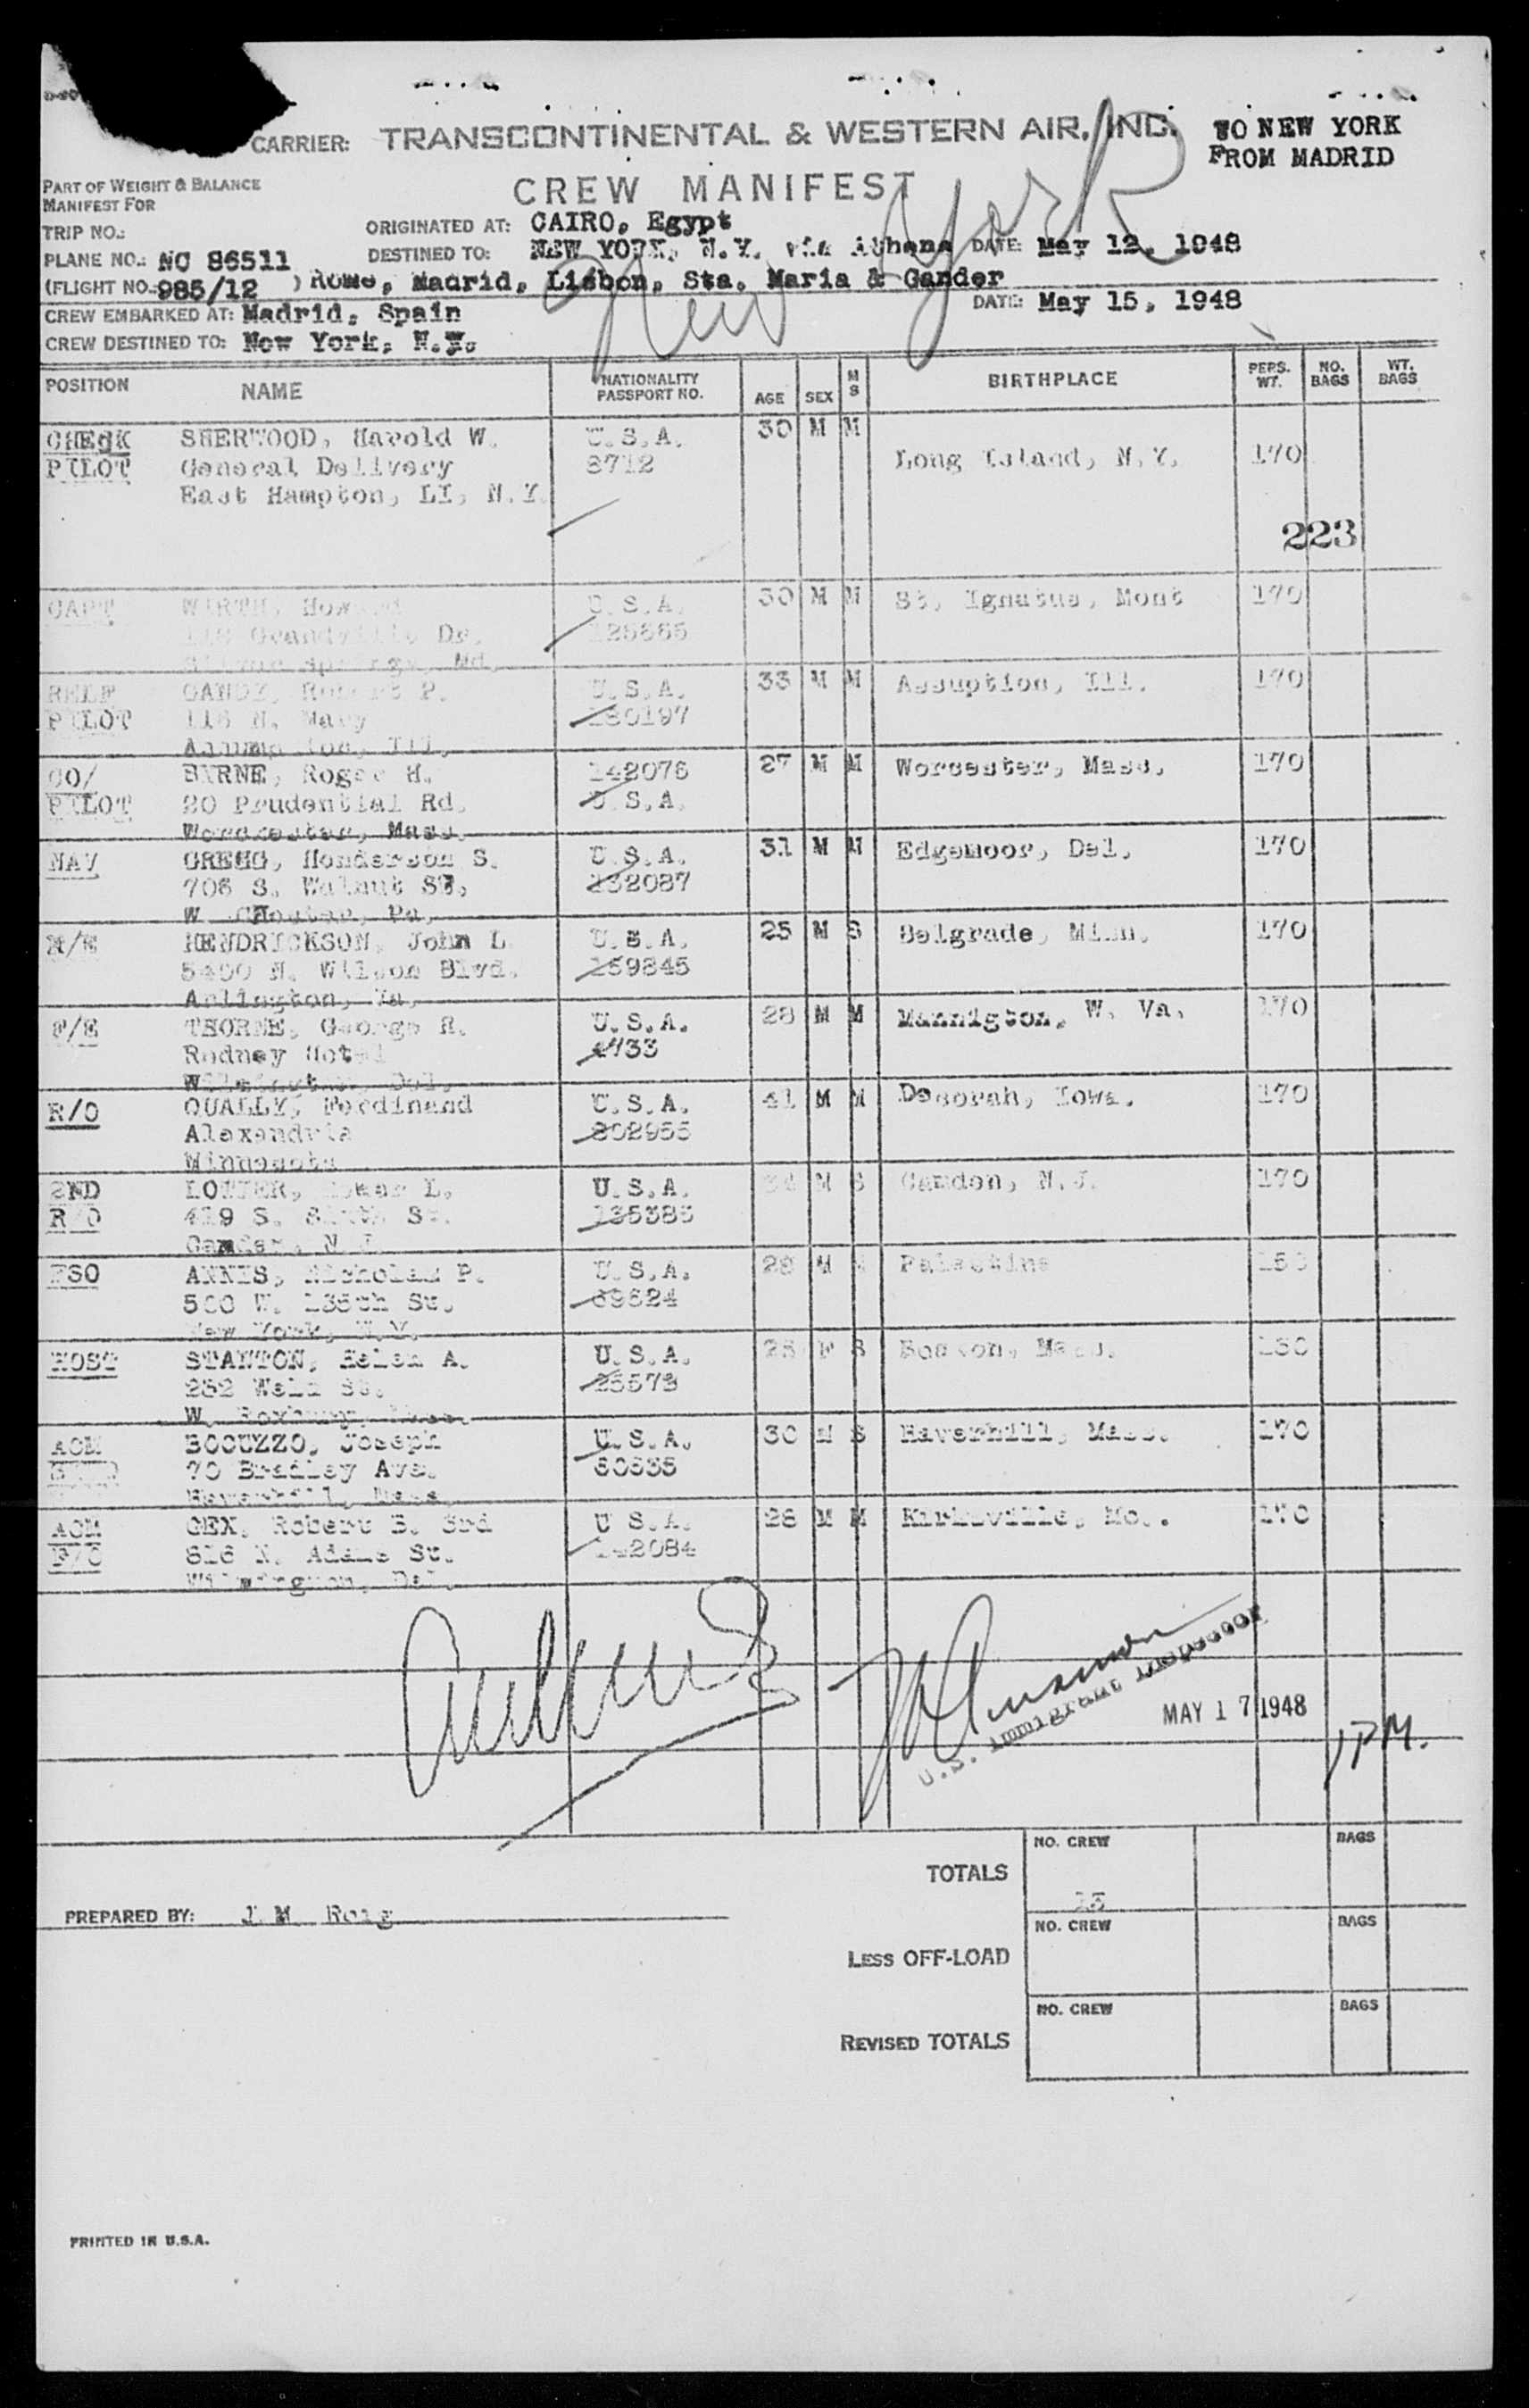 CARRIER: TRANSCONTINENTAL & WESTERN AIR, INC.
TO NEW YORK
FROM MADRID
PART OF WEIGHT & BALANCE
MANIFEST FOR
CREW MANIFEST
New York
TRIP NO.:
ORIGINATED AT: CAIRO, Egypt
PLANE NO.: NC 86511
DESTINED TO: NEW YORK, N.Y. via Athens DATE: May 12, 1948
(FLIGHT NO. 985/12 ) Rome, Madrid, Lisbon, Sta. Maria & Gander
CREW EMBARKED AT: Madrid, Spain
DATE: May 15, 1948
CREW DESTINED TO: New York, N.Y.
POSITION NAME NATIONALITY PASSPORT NO. AGE SEX M S BIRTHPLACE PERS. WT. NO. BAGS WT. BAGS
CHECK SHERWOOD, Harold W. U.S.A. 30 M M
PILOT General Delivery 8712 Long Island, N.Y. 170
East Hampton, LI, N.Y.
223
CAPT WIRTH, Howard U.S.A. 30 M M St. Ignatus, Mont 170
Dr. 125665
Md.
RELF GANDY, Robert P. U.S.A. 33 M M Assuption, Ill. 170
PILOT 116 N. Mary 180197
Assumption, Ill.
CO/ BYRNE, Roger H. 142076 27 M M Worcester, Mass. 170
PILOT 20 Prudential Rd. U.S.A.
Worcester, Mass.
NAV GREGG, Henderson S. U.S.A. 31 M M Edgemoor, Del. 170
706 S. Walnut St. 132087
W. Chester, Pa.
HENDRICKSON, John L. U.S.A. 25 M S Belgrade, Minn. 170
5400 N. Wilson Blvd. 159845
Arlington, Va.
F/E THORNE, George R. U.S.A. 28 M M Mannigton, W. Va. 170
Rodney Hotel 4733
Wilmington, Del.
R/O QUALLY, Ferdinand U.S.A. 41 M M Decorah, Iowa. 170
Alexandria 802955
Minnesota
2ND LOTTER, L. U.S.A. M S Camden, N.J. 170
R/O 419 S. Sixth St. 135385
Camden, N.J.
FSO ANNIS, Nicholas P. U.S.A. 29 M Palestine
500 W. 135th St. 69624
New York, N.Y.
HOST STANTON, Helen A. U.S.A. 25 F S Boston, Mass. 130
282 Weld St. 25573
W. Roxbury, Mass.
ACM BOCUZZO, Joseph U.S.A. 30 M S Haverhill, Mass. 170
70 Bradley Ave. 60635
Haverhill, Mass.
ACM GEX, Robert B. 3rd U.S.A. 28 M M Kirksville, Mo.. 170
F/O 816 N. Adams St. 142084
Wilmington, Del.
U.S. Immigrant Inspector
MAY 17 1948
1PM.
TOTALS NO. CREW BAGS
13
PREPARED BY: J M Roig
LESS OFF-LOAD NO. CREW BAGS
REVISED TOTALS NO. CREW BAGS
PRINTED IN U.S.A.